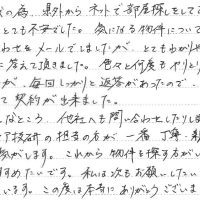 の為、県外からネットで部屋探しをして
とても不安でした。気になる物件について
わせをメールでしましたが、とてもわかりや
に答えて頂きました。色々と何度もやりと
が、毎回しっかりと返答があったので、
て契約が出来ました。
なところ、他社へも問い合わせしたりし
ア技研の担当の方が一番、丁寧・親
象がします。これから物件を探す方がい
すすめたいです。私は次もお願いしたい
います。この度は本当にありがとうございま